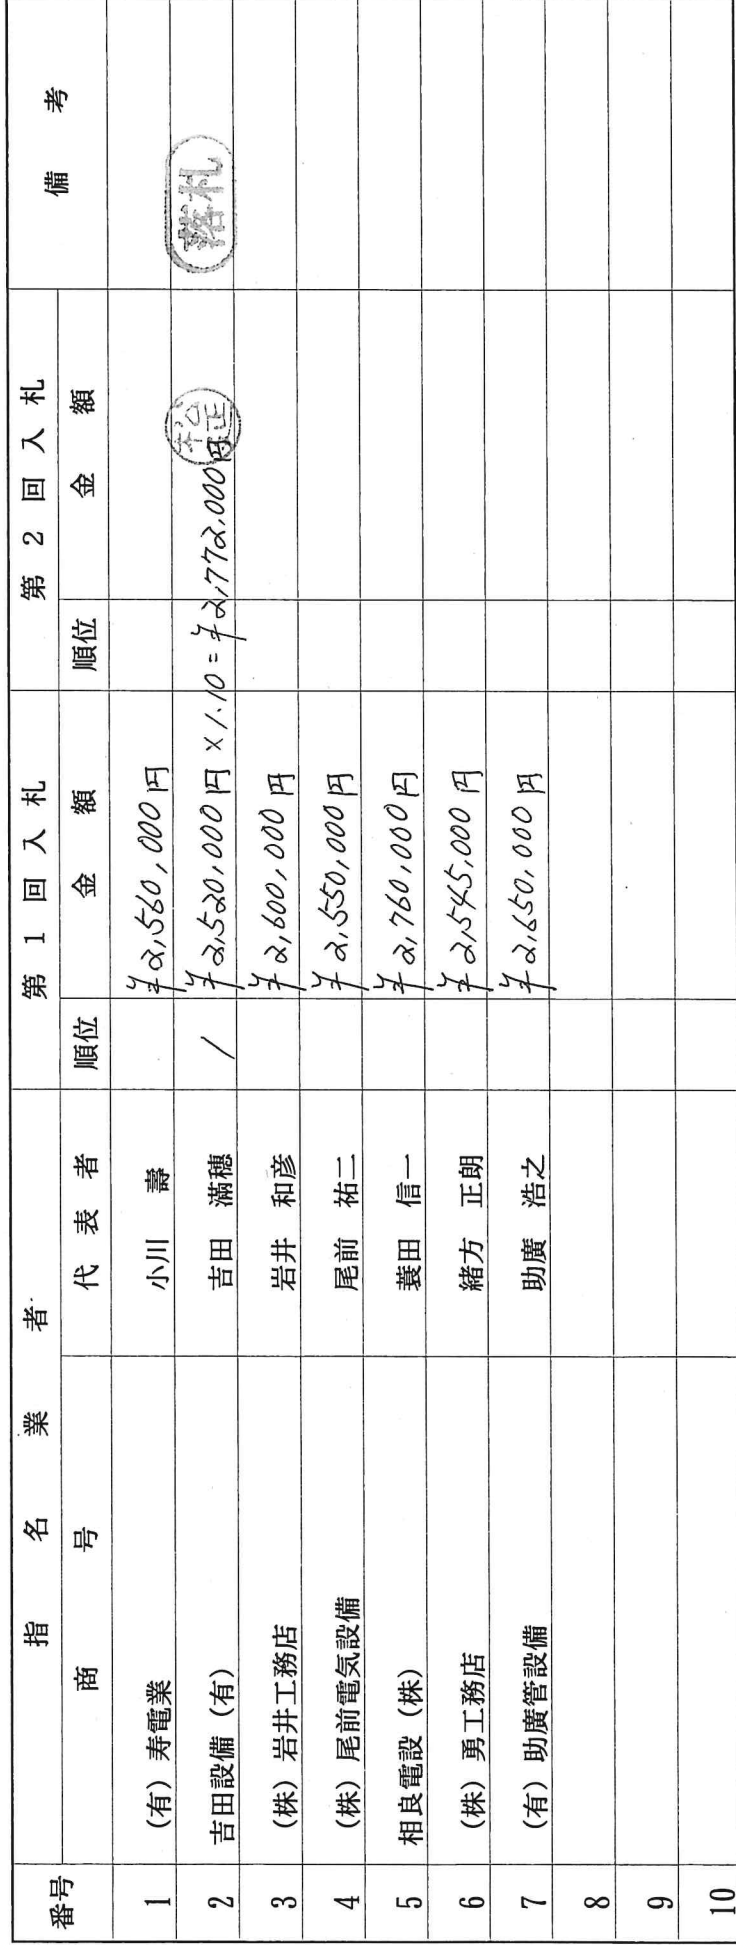 番号 指名業者 第1回入札 第2回入札 備考
商号 代表者 順位 金額 順位 金額
1 (有)寿電業 小川 壽 ¥2,560,000円
2 吉田設備(有) 吉田 滿穂 1 ¥2,520,000円 ×1.10=¥2,772,000円 落札
3 (株)岩井工務店 岩井 和彦 ¥2,600,000円
4 (株)尾前電気設備 尾前 祐二 ¥2,550,000円
5 相良電設(株) 蓑田 信一 ¥2,760,000円
6 (株)勇工務店 緒方 正朗 ¥2,545,000円
7 (有)助廣管設備 助廣 浩之 ¥2,650,000円
8
9
10